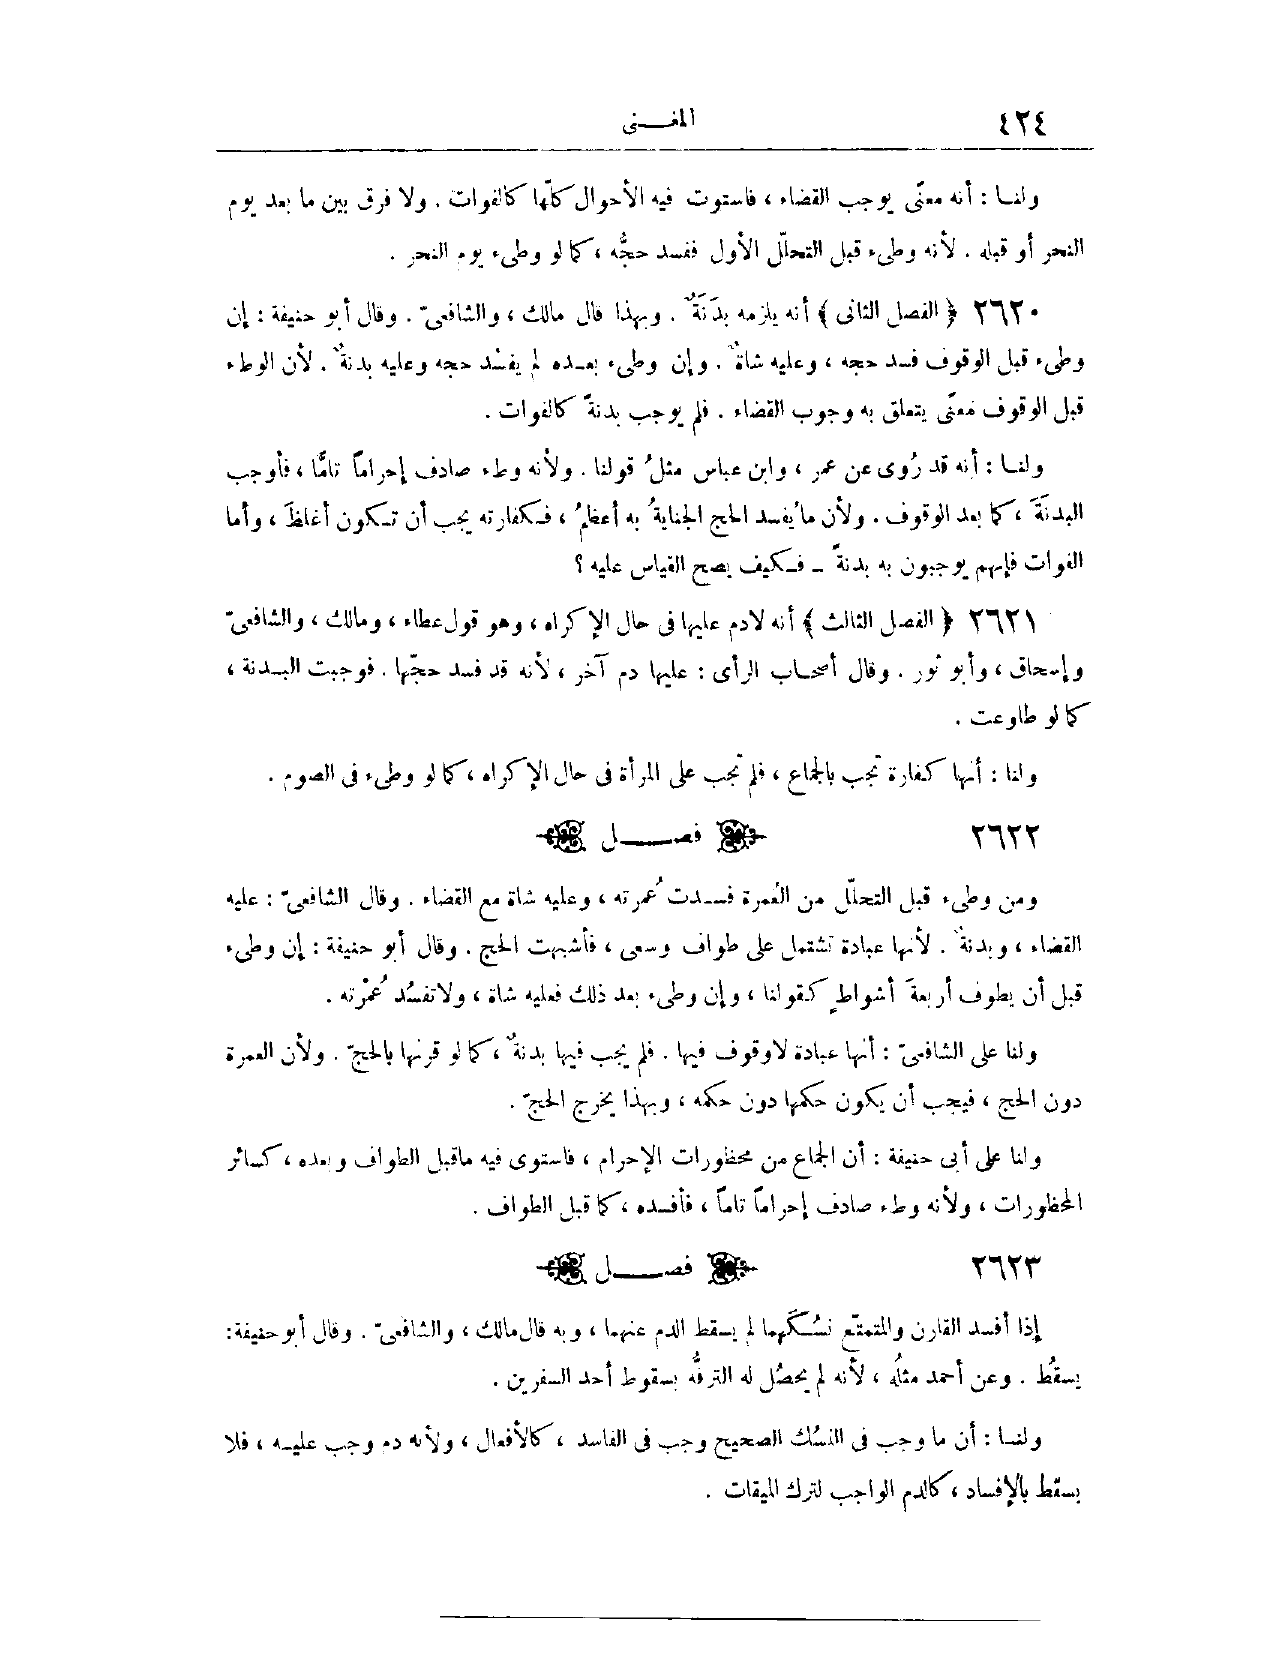 ٤٢٤
المغـــنى
ولنـا : أنه معنًى يوجب القضاء ، فاستوت فيه الأحوال كلّها كالفوات . ولا فرق بين ما بعد يوم
النحر أو قبله . لأنه وطىء قبل التحلّل الأول ففسد حجُّه ، كما لو وطىء يوم النحر .
٢٦٢٠ ﴿ الفصل الثانى ﴾ أنه يلزمه بدَنَةٌ . وبهذا قال مالك ، والشافعىّ . وقال أبو حنيفة : إن
وطىء قبل الوقوف فسد حجه ، وعليه شاةٌ . وإن وطىء بعـده لم يفسُد حجه وعليه بدنةٌ . لأن الوطء
قبل الوقوف معنًى يتعلق به وجوب القضاء . فلم يوجب بدنةً كالفوات .
ولنـا : أنه قد رُوى عن عمر ، وابن عباس مثلُ قولنا . ولأنه وطء صادف إحراماً تامًّا ، فأوجب
البدنَةَ ، كما بعد الوقوف . ولأن ما يُفسد الحج الجنايةُ به أعظمُ ، فـكفارته يجب أن تـكون أغلظَ ، وأما
الفوات فإنهم يوجبون به بدنةً ــ فـكيف يصح القياس عليه ؟
٢٦٢١ ﴿ الفصل الثالث ﴾ أنه لادم عليها فى حال الإكراه ، وهو قول عطاء ، ومالك ، والشافعىّ
وإسحاق ، وأبو ثور . وقال أصحـاب الرأى : عليها دم آخر ، لأنه قد فسد حجّها . فوجبت البـدنة ،
كما لو طاوعت .
ولنا : أنها كفارة تجب بالجماع ، فلم تجب على المرأة فى حال الإكراه ، كما لو وطىء فى الصوم .
٢٦٢٢
فصـــل
ومن وطىء قبل التحلّل من العُمرة فسـدت عُمرته ، وعليه شاة مع القضاء . وقال الشافعىّ : عليه
القضاء ، وبدنةٌ . لأنها عبادة تشتمل على طواف وسعى ، فأشبهت الحج . وقال أبو حنيفة : إن وطىء
قبل أن يطوف أربعةَ أشواطٍ كقولنا ، وإن وطىء بعد ذلك فعليه شاة ، ولاتفسُد عُمْرته .
ولنا على الشافعىّ : أنها عبادة لاوقوف فيها . فلم يجب فيها بدنةٌ ، كما لو قرنها بالحجّ . ولأن العمرة
دون الحج ، فيجب أن يكون حكمها دون حكمه ، وبهذا يخرج الحجّ .
ولنا على أبى حنيفة : أن الجماع من محظورات الإحرام ، فاستوى فيه ماقبل الطواف وبعده ، كسائر
المحظورات ، ولأنه وطء صادف إحراماً تاماً ، فأفسده ، كما قبل الطواف .
٢٦٢٣
فصـــل
إذا أفسد القارن والمتمتّع نسُكَهما لم يسقط الدم عنهما ، وبه قال مالك ، والشافعىّ . وقال أبو حنيفة :
يسقُط . وعن أحمد مثلُه ، لأنه لم يحصُل له الترفُّه بسقوط أحد السفرين .
ولنـا : أن ما وجب فى النسُك الصحيح وجب فى الفاسد ، كالأفعال ، ولأنه دم وجب عليـه ، فلا
يسقط بالإفساد ، كالدم الواجب لترك الميقات .